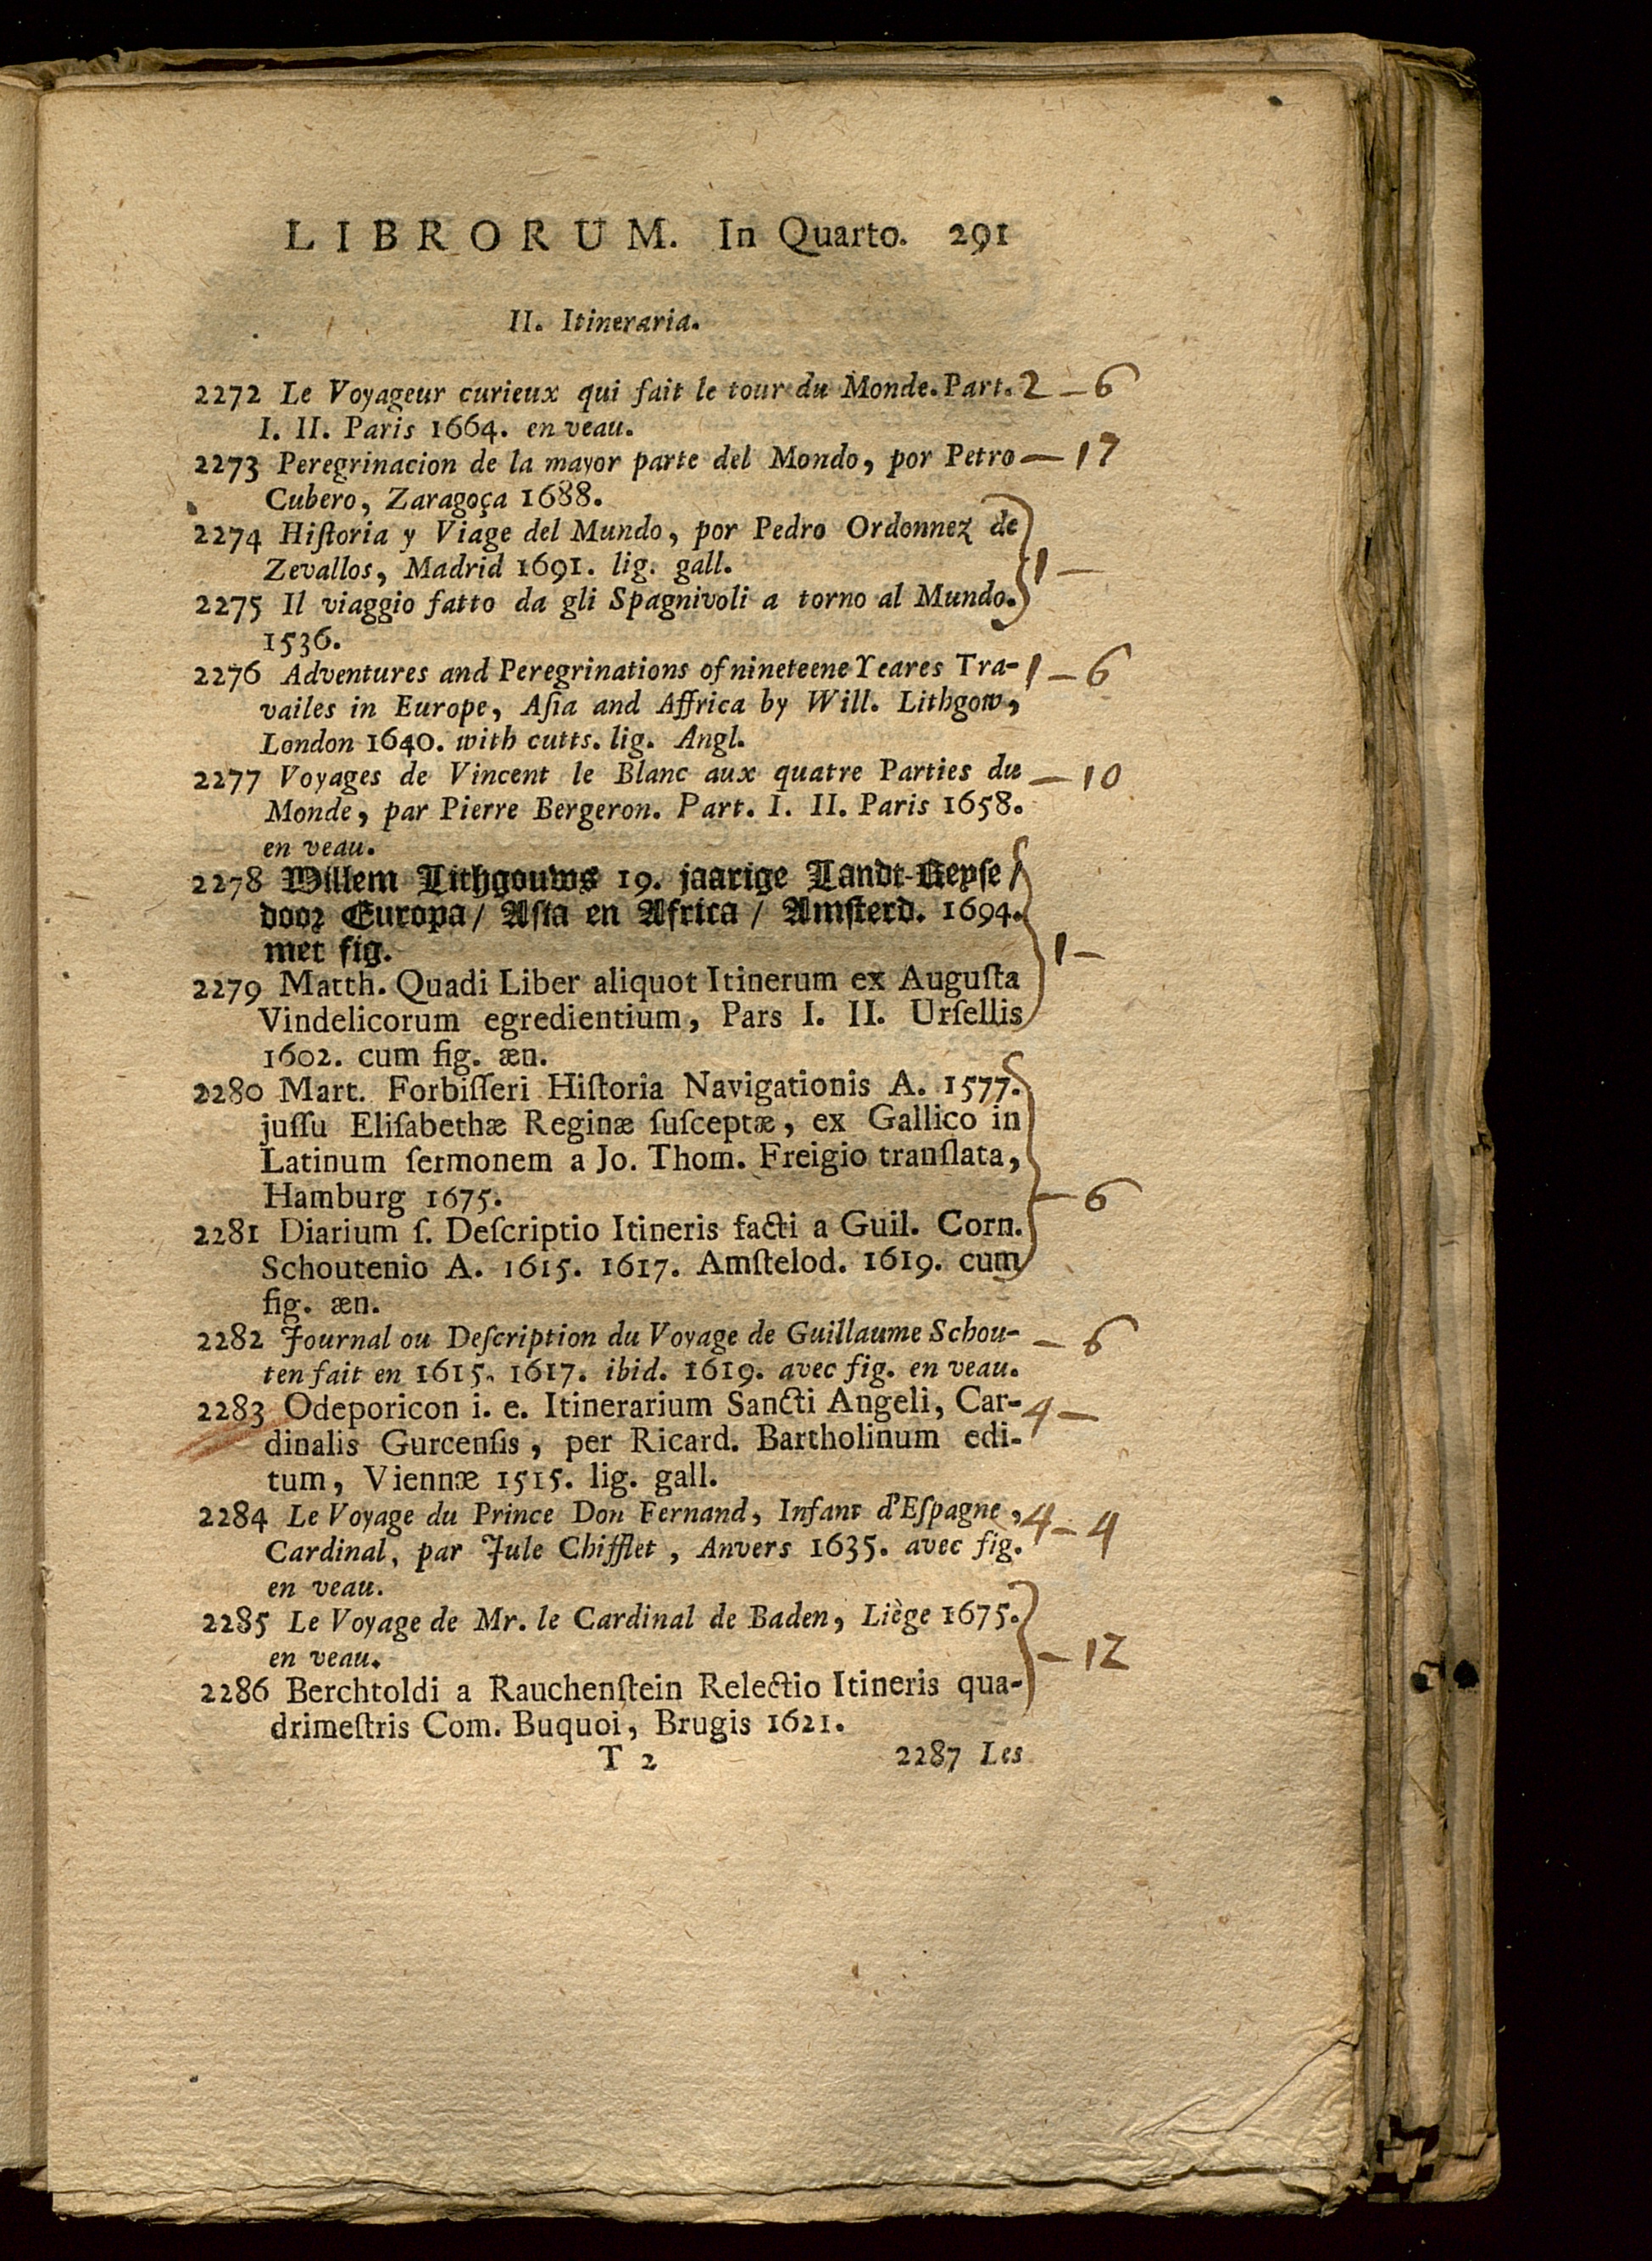 LIBRORUM. In Quarto. 291
II. Itineraria.
2272 Le Voyageur curieux qui fait le tour du Monde. Part. 2 — 6
I. II. Paris 1664. en veau.
2273 Peregrinacion de la mayor parte del Mondo, por Petro — 17
Cubero, Zaragoça 1688.
2274 Hiſtoria y Viage del Mundo, por Pedro Ordonnez de
Zevallos, Madrid 1691. lig. gall. 1 —
2275 Il viaggio fatto da gli Spagnivoli a torno al Mundo.
1536.
2276 Adventures and Peregrinations of nineteene Yeares Tra- 1 — 6
vailes in Europe, Aſia and Affrica by Will. Lithgow,
London 1640. with cutts. lig. Angl.
2277 Voyages de Vincent le Blanc aux quatre Parties du — 10
Monde, par Pierre Bergeron. Part. I. II. Paris 1658.
en veau.
2278 Willem Lithgouws 19. jaarige Landt-Reyſe /
door Europa / Aſia en Africa / Amſterd. 1694.
met fig. 1 —
2279 Matth. Quadi Liber aliquot Itinerum ex Auguſta
Vindelicorum egredientium, Pars I. II. Urſellis
1602. cum fig. æn.
2280 Mart. Forbiſſeri Hiſtoria Navigationis A. 1577.
juſſu Eliſabethæ Reginæ ſuſceptæ, ex Gallico in
Latinum ſermonem a Jo. Thom. Freigio tranſlata,
Hamburg 1675. — 6
2281 Diarium ſ. Deſcriptio Itineris facti a Guil. Corn.
Schoutenio A. 1615. 1617. Amſtelod. 1619. cum
fig. æn.
2282 Journal ou Deſcription du Voyage de Guillaume Schou- — 6
ten fait en 1615. 1617. ibid. 1619. avec fig. en veau.
2283 Odeporicon i. e. Itinerarium Sancti Angeli, Car- 4 —
dinalis Gurcenſis, per Ricard. Bartholinum edi-
tum, Viennæ 1515. lig. gall.
2284 Le Voyage du Prince Don Fernand, Infant d'Eſpagne, 4 — 4
Cardinal, par Jule Chifflet, Anvers 1635. avec fig.
en veau.
2285 Le Voyage de Mr. le Cardinal de Baden, Liège 1675.
en veau. — 12
2286 Berchtoldi a Rauchenſtein Relectio Itineris qua-
drimeſtris Com. Buquoi, Brugis 1621.
T 2 2287 Les